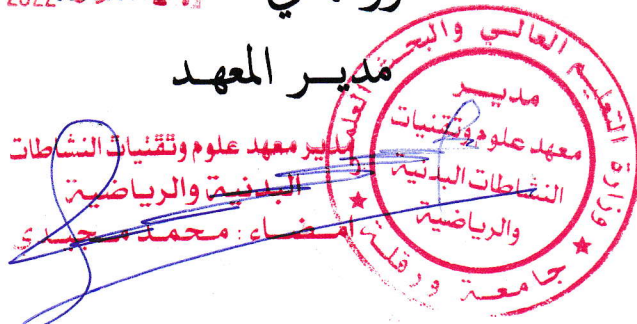 2022
مديـر المعهـد
مدير معهد علوم وتقنيات النشاطات
البدنية والرياضية
امضاء : محمد مجيدي
وزارة التعليم العالي والبحث العلمي
جامعة ورقلة
مديـر
معهد علوم وتقنيات
النشاطات البدنية
والرياضية